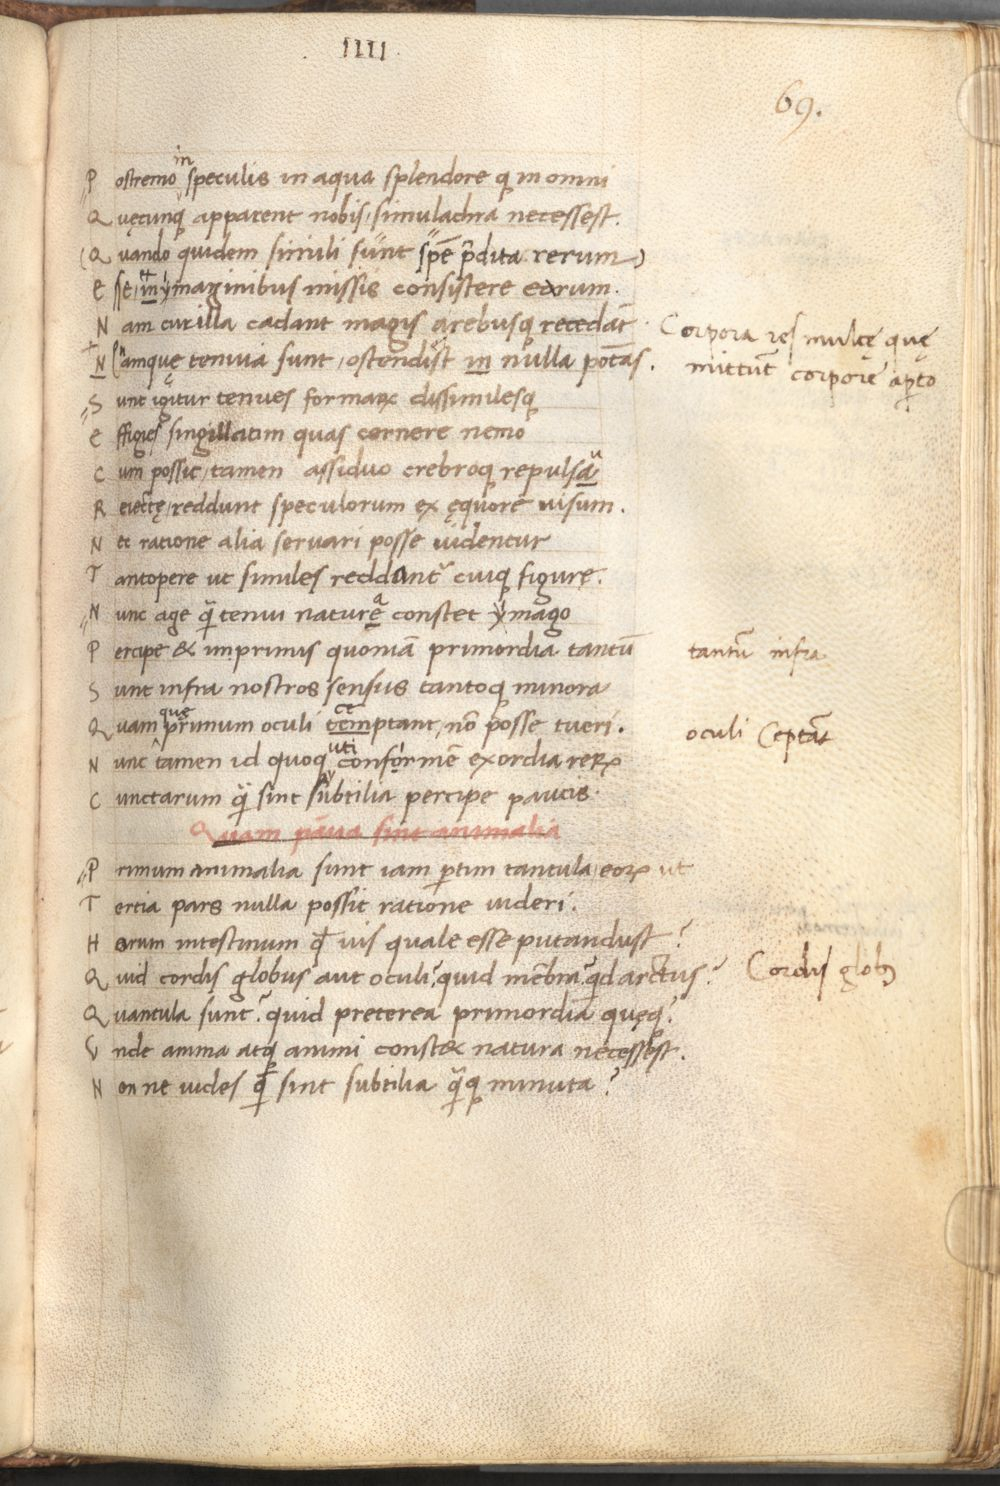 IIII
69.
Postremo in speculis in aqua splendore q in omni
Quęcunq apparent nobis simulachra necessest.
(Quando quidem simili sunt spē p̄dita rerum)
Esse, et in ymaginibus missis consistere eorum.
Nam cur illa cadant magis arebusq recedāt
Corpora res multę quę
Namquę tenuia sunt, ostendist in nulla potēas.
mittūt corporē apto
Sunt igitur tenues formaꝝ dissimilesq
Effigies singillatim quas cernere nemo
Cum possit, tamen assiduo crebroq repulsu
Reiectę, reddunt speculorum ex ęquore uisum.
Nec ratione alia seruari posse uidentur
Tantopere ut similes reddantr cuiq figurę.
Nunc age q̄ tenui natura constet ymago
Percipe & in primis quoniā primordia tantū
tantū infra
Sunt infra nostros sensus tantoq minora
Quam quę primum oculi temptant, nō posse tueri.
oculi Ceptāt
Nunc tamen id quoq uti conformē exordia reꝝ
Cunctarum q̄ sint subtilia percipe paucis.
Quam parua sint animalia
Primum animalia sunt iam ꝑtim tantula eoꝝ ut
Tertia pars nulla possit ratione uideri.
Horum intestinum qđ uis quale esse putandust?
Quid cordis globus aut oculi? quid mēbra? qd arctus?
Cordis glob9
Quantula sunt? quid preterea primordia quęq?
Unde anima atq animi constet natura necessest.
Non ne uides q̄ sint subtilia q̄q minuta?